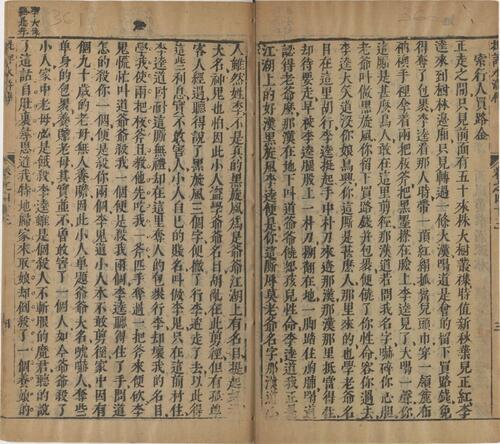 索行人買路金
正走之間只見前面有五十来株大樹叢雜時值新秋葉兒正紅李
逵來到樹林邊廂只見轉過一條大漢喝道是會的留下買路錢免
得奪了包裹李逵看那人時帶一頂紅絹抓鬅兒頭巾穿一領麄布
衲襖手裡拿着兩把板斧把黑墨搽在臉上李逵見了大喝一聲你
這厮是甚麽鳥人敢在這里剪徑那漢道若問我名字嚇碎你心胆
老爺叫做黑旋風你留下買路錢并包裹便饒了你性命容你過去
李逵大笑道沒你娘鳥興你這厮是甚麽人那里來的也學老爺名
目在這里胡行李逵挺起手中朴刀來逩那漢那漢那里抵當得住
却待要走早被李逵腿股上一朴刀搠翻在地一脚踏住胸脯喝道
認得老爺麽那漢在地下叫道爺爺饒恁孩兒性命李逵道我正是
江湖上的好漢黑旋風李逵便是你這厮辱莫老爺名字那漢道
人雖然姓李不是真的黑旋風為是爺爺江湖上有名目提起
大名神鬼也怕因此小人盜學爺爺名目胡亂在此剪徑但有孤單
客人經過聽得說了黑旋風三個字便撇了行李逩走了去以此得
這些利息實不敢害人小人自已的賤名叫做李鬼只在這前村住
李逵道叵耐這厮無禮却在這里奪人的包裹行李却壞我的名目
學我使兩把板斧且教他先吃我一斧匹手奪過一把斧來便砍李
鬼慌忙叫道爺爺殺我一個便是殺我兩個李逵聽得住了手問道
怎的殺你一個便是殺你兩個李鬼道小人本不敢剪徑家中因有
個九十歲的老母無人養贍因此小人單題爺爺大名唬嚇人奪些
單身的包裹養贍老母其實並不曾敢害了一個人如今爺爺殺了
小人家中老母必是餓殺李逵雖是個殺人不斬眼的魔君聽的說
了這話自肚裏尋思道我特地歸家來取娘却倒殺了一個養娘的